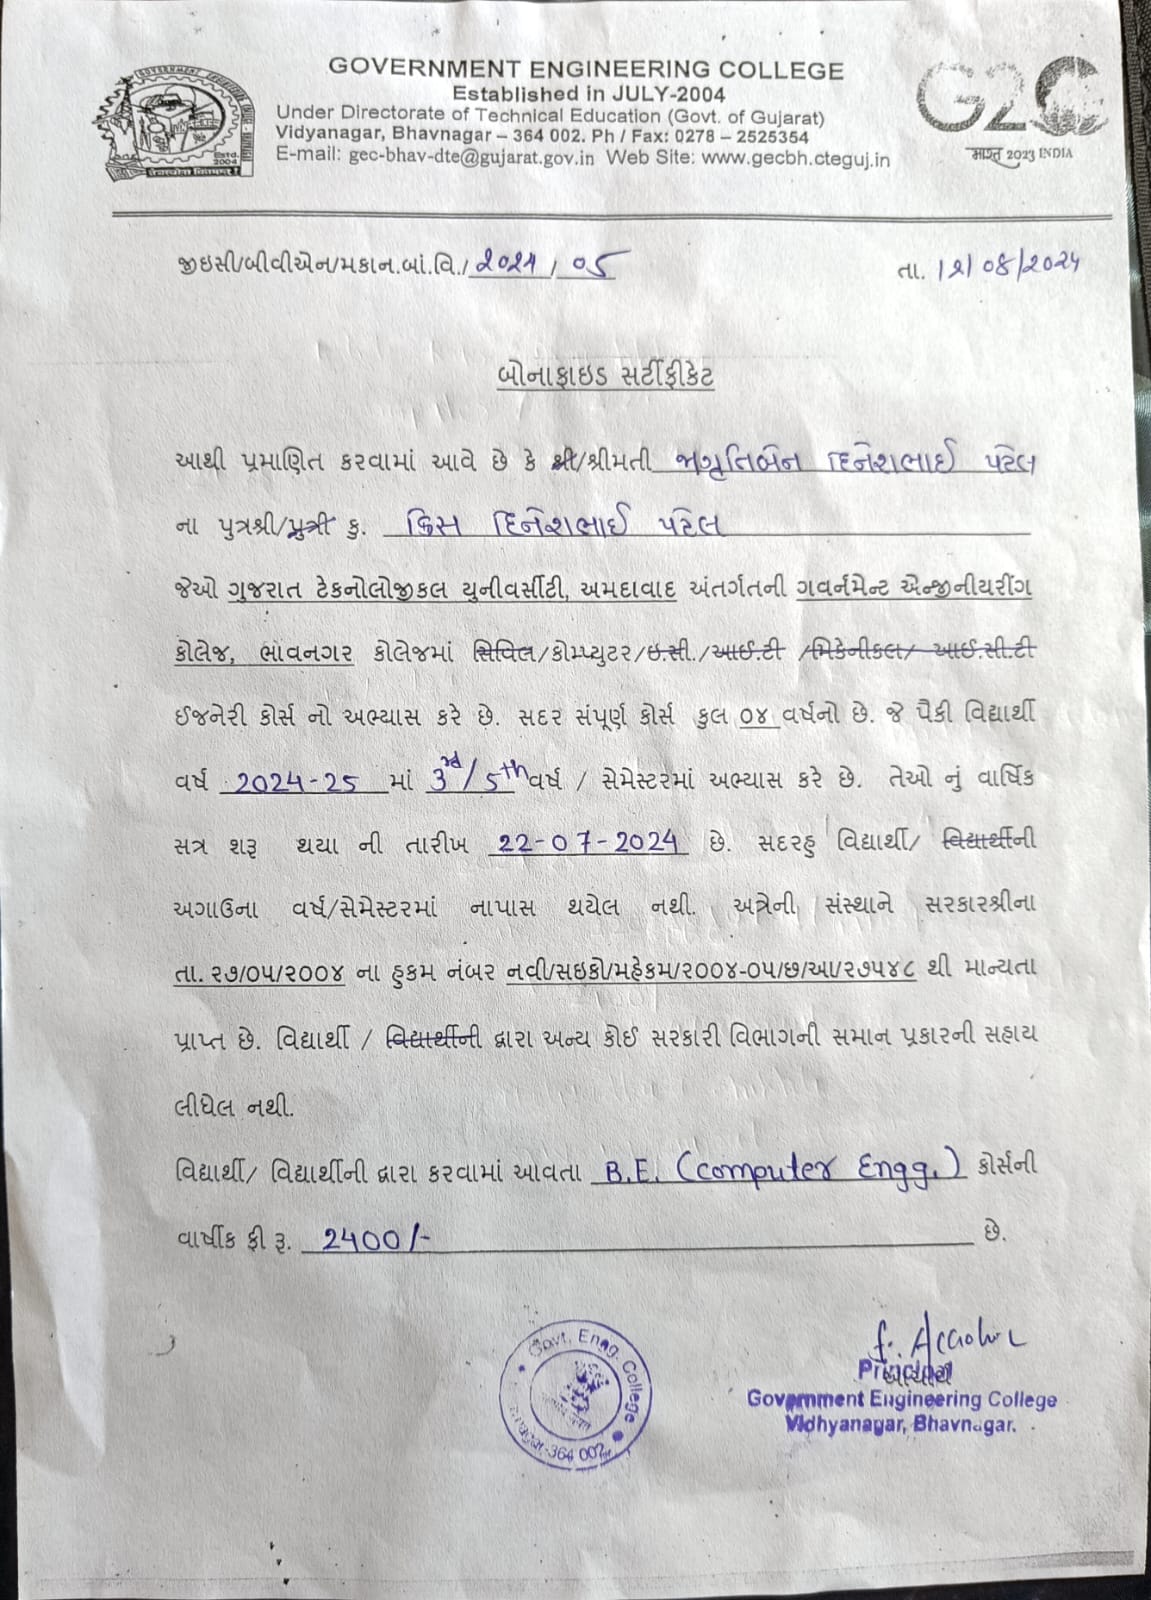 GOVERNMENT ENGINEERING COLLEGE
Established in JULY-2004
Under Directorate of Technical Education (Govt. of Gujarat)
Vidyanagar, Bhavnagar – 364 002. Ph / Fax: 0278 – 2525354
E-mail: gec-bhav-dte@gujarat.gov.in Web Site: www.gecbh.cteguj.in
G20
भारत 2023 INDIA
જીઇસી/બીવીએન/મકાન.બાં.વિ./ 2024 / 05
તા. 12/08/2024
બોનાફાઇડ સર્ટીફીકેટ
આથી પ્રમાણિત કરવામાં આવે છે કે શ્રી/શ્રીમતી જાગૃતિબેન દિનેશભાઈ પટેલ
ના પુત્રશ્રી/પુત્રી કુ. ક્રિસ દિનેશભાઈ પટેલ
જેઓ ગુજરાત ટેકનોલોજીકલ યુનીવર્સીટી, અમદાવાદ અંતર્ગતની ગવર્નમેન્ટ એન્જીનીયરીંગ
કોલેજ, ભાવનગર કોલેજમાં સિવિલ/કોમ્પ્યુટર/ઇ.સી./આઈ.ટી /મિકેનીકલ/ આઈ.સી.ટી
ઈજનેરી કોર્સ નો અભ્યાસ કરે છે. સદર સંપૂર્ણ કોર્સ કુલ ૦૪ વર્ષનો છે. જે પૈકી વિદ્યાર્થી
વર્ષ 2024-25 માં 3rd/5th વર્ષ / સેમેસ્ટરમાં અભ્યાસ કરે છે. તેઓ નું વાર્ષિક
સત્ર શરૂ થયા ની તારીખ 22-07-2024 છે. સદરહુ વિદ્યાર્થી/ વિદ્યાર્થીની
અગાઉના વર્ષ/સેમેસ્ટરમાં નાપાસ થયેલ નથી. અત્રેની સંસ્થાને સરકારશ્રીના
તા. ૨૭/૦૫/૨૦૦૪ ના હુકમ નંબર નવી/સઇકો/મહેકમ/૨૦૦૪-૦૫/છ/આ/૨૭૫૪૮ થી માન્યતા
પ્રાપ્ત છે. વિદ્યાર્થી / વિદ્યાર્થીની દ્વારા અન્ય કોઈ સરકારી વિભાગની સમાન પ્રકારની સહાય
લીધેલ નથી.
વિદ્યાર્થી/ વિદ્યાર્થીની દ્વારા કરવામાં આવતા B.E. (Computer Engg.) કોર્સની
વાર્ષીક ફી રૂ. 2400/- છે.
Govt. Engg. College
364 002
Principal
Government Engineering College
Vidhyanagar, Bhavnagar.